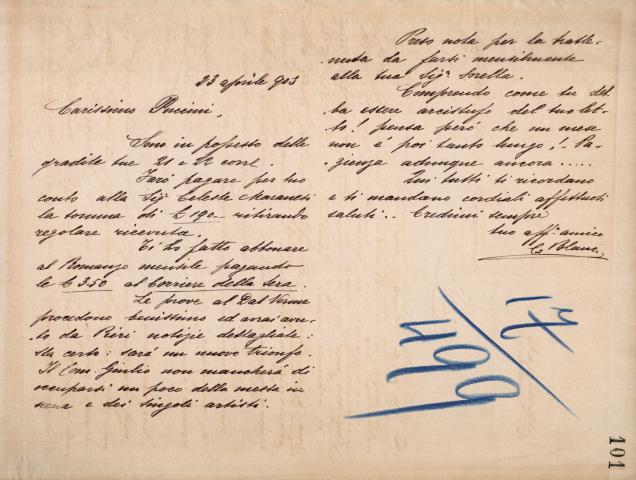 23 aprile 903
Carissimo Puccini,
Sono in possesso delle
gradite tue 21 e 22 corr.
Farò pagare per tuo
conto alla Sig.ª Celeste
la somma di £ 190.- ritirando
regolare ricevuta.
Ti ho fatto abbonare
al Romanzo mensile pagando
le £ 3.50 al Corriere della Sera.
Le prove al Dal Verme
procedono benissimo ed avrai avu-
to da notizie dettagliate:
sta certo: sarà un nuovo trionfo.
Il Com. Giulio non mancherà di
occuparsi un poco della messa in
scena e dei singoli artisti.
Preso nota per la tratte-
nuta da farsi mensilmente
alla tua Sigª Sorella.
Comprendo come tu deb-
ba essere arcistufo del tuo let-
to! pensa però che un mese
non è poi tanto lungo! Pa-
zienza adunque ancora.....
Qui tutti ti ricordano
e ti mandano cordiali affettuosi
saluti.. Credimi sempre
tuo aff. amico
C. Blanc
17
499
101